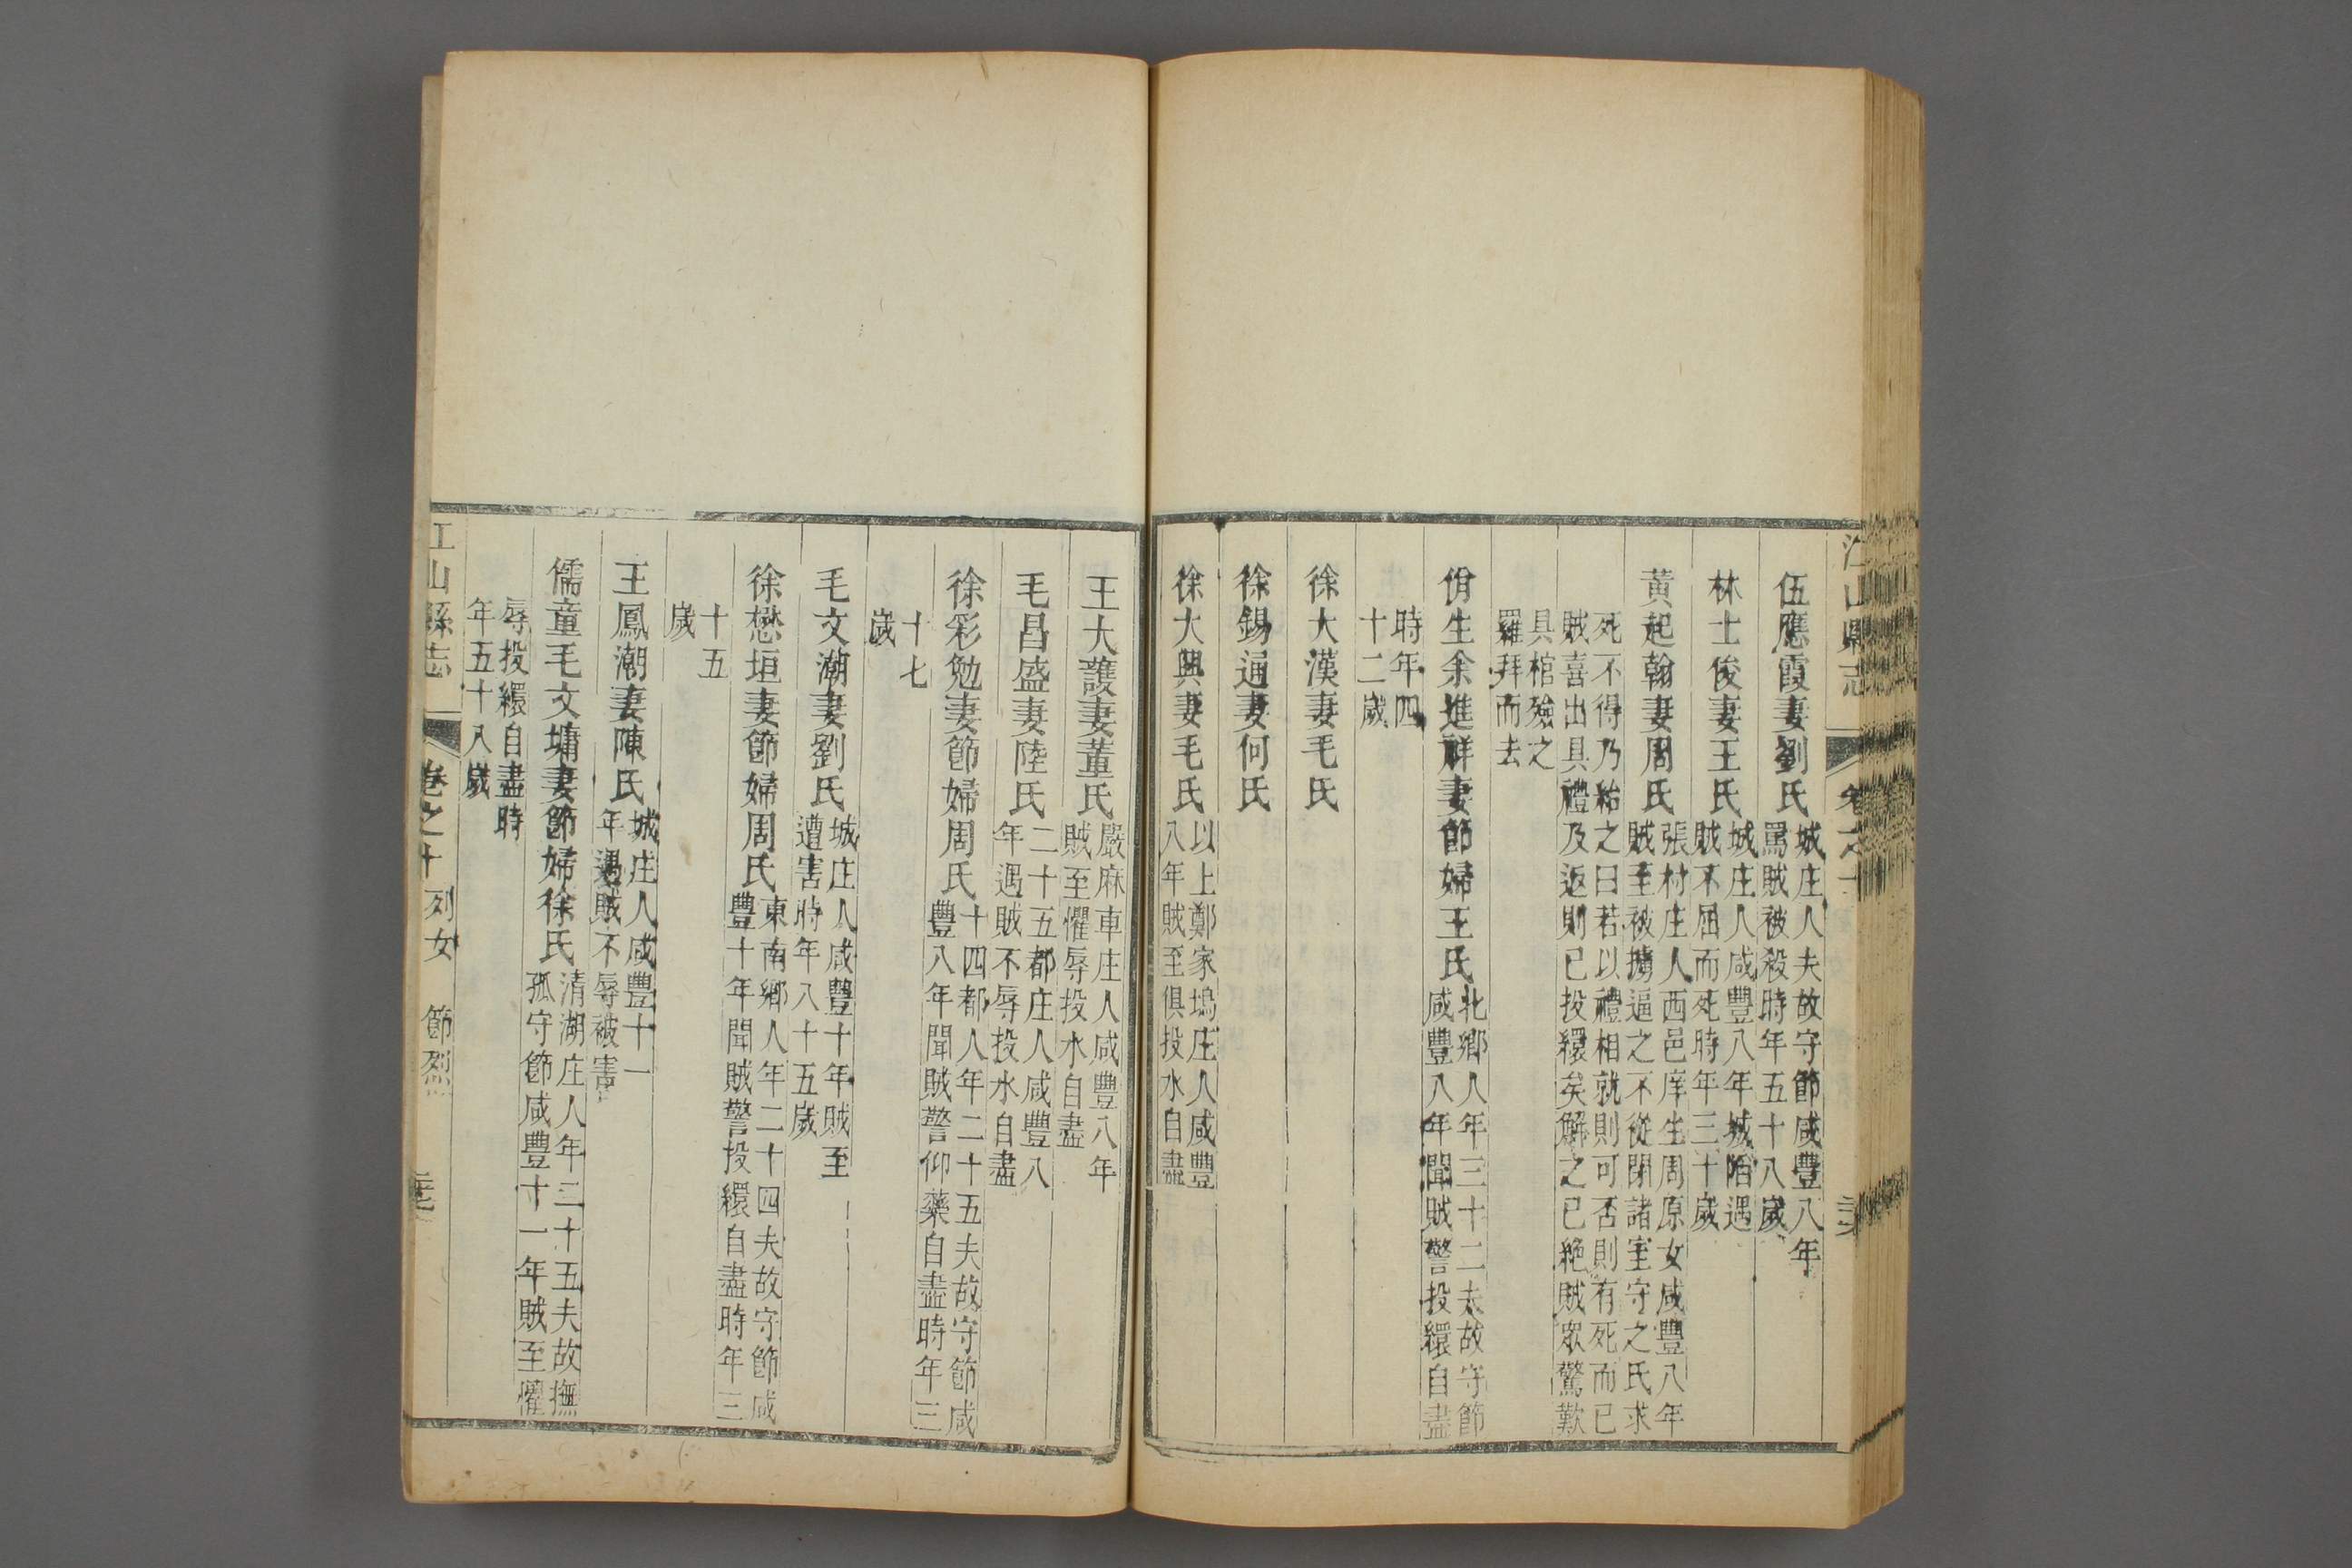 江山縣志
卷之十
伍應霞妻劉氏
城庄人夫故守節咸豐八年
罵賊被殺時年五十八歲
林士俊妻王氏
城庄人咸豐八年城陷遇
賊不屈而死時年三十歲
黃起翰妻周氏
張村庄人西邑庠生周原女咸豐八年
賊至被擄逼之不從閉諸室守之氏求
死不得乃紿之曰若以禮相就則可否則有死而已
賊喜出具禮及返則已投繯矣解之已絶賊眾驚歎
具棺殮之
羅拜而去
佾生余進祥妻節婦王氏
北鄉人年三十二夫故守節
咸豐八年聞賊警投繯自盡
時年四
十二歲
徐大漢妻毛氏
徐錫通妻何氏
徐大興妻毛氏
以上鄭家塢庄人咸豐
八年賊至俱投水自盡
王大護妻董氏
嚴麻車庄人咸豐八年
賊至懼辱投水自盡
毛昌盛妻陸氏
二十五都庄人咸豐八
年遇賊不辱投水自盡
徐彩勉妻節婦周氏
十四都人年二十五夫故守節咸
豐八年聞賊警仰藥自盡時年三
十七
歲
毛文潮妻劉氏
城庄人咸豐十年賊至
遭害時年八十五歲
徐懋垣妻節婦周氏
東南鄉人年二十四夫故守節咸
豐十年聞賊警投繯自盡時年三
十五
歲
王鳳潮妻陳氏
城庄人咸豐十一
年遇賊不辱被害
儒童毛文墉妻節婦徐氏
清湖庄人年二十五夫故撫
孤守節咸豐十一年賊至懼
辱投繯自盡時
年五十八歲
江山縣志
卷之十 列女 節烈